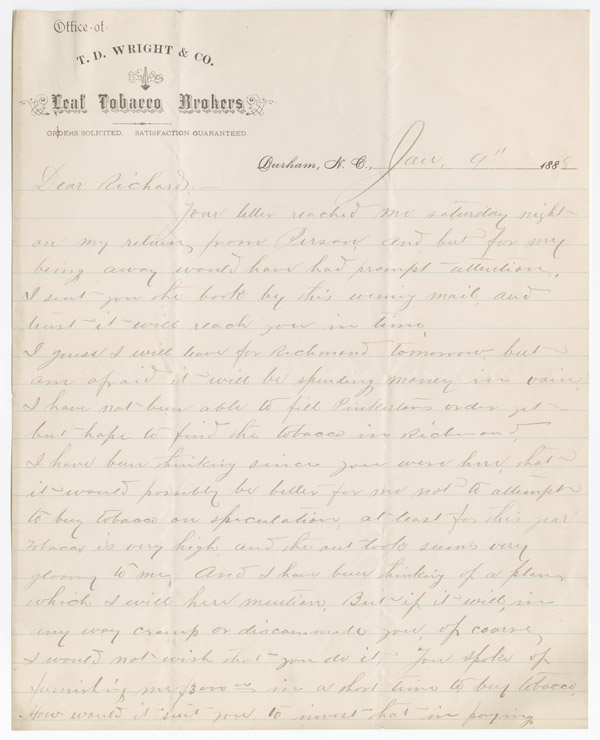 Office of
T. D. WRIGHT & CO.
Leaf Tobacco Brokers
ORDERS SOLICITED. SATISFACTION GUARANTEED.
Durham, N. C., Jan. 9" 1888
Dear Richard,
Your letter reached me saturday night
on my return from Person and but for my
being away would have had prompt attention.
I sent you the book by this evening mail, and
trust it will reach you in time.
I guess I will leave for Richmond tomorrow, but
am afraid it will be spending money in vain.
I have not been able to fill Pinkertons order yet
but hope to find the tobacco in Richmond,
I have been thinking since you were here, that
it would possibly be better for me not to attempt
to buy tobacco on speculation, at least for this year
Tobacco is very high, and the out look seems very
gloomy to me, And I have been thinking of a plan,
which I will here mention. But if it will, in
any way cramp or discommode you, of coarse,
I would not wish that you do it. You spoke of
furnishing me $3000 00 in a short time to buy tobacco,
How would it suit you to invest that in paying